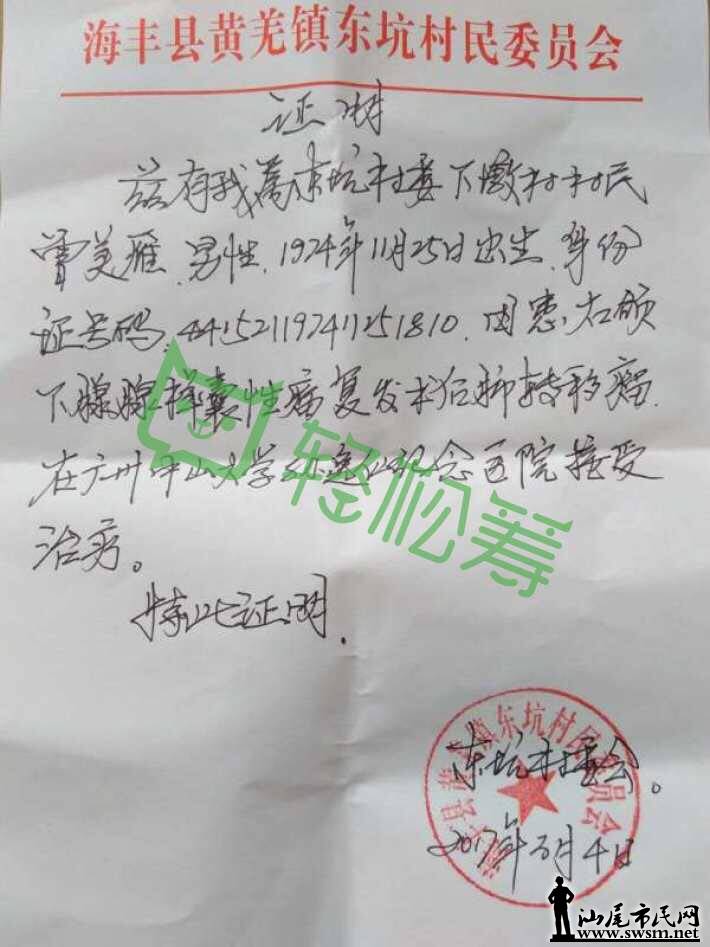 海丰县黄羌镇东坑村民委员会
证明
兹有我东坑村委下墩村村民
曾美雁、男性、1974年11月25日出生、身份
证号码、441521197411251810、因患、右颌
下腺腺样囊性癌复发术后肺转移瘤、
在广州中山大学孙逸仙纪念医院接受
治疗。
特此证明、
东坑村委会。
2017年3月4日
海丰县黄羌镇东坑村民委员会
轻松筹
汕尾市民网
www.swsm.net